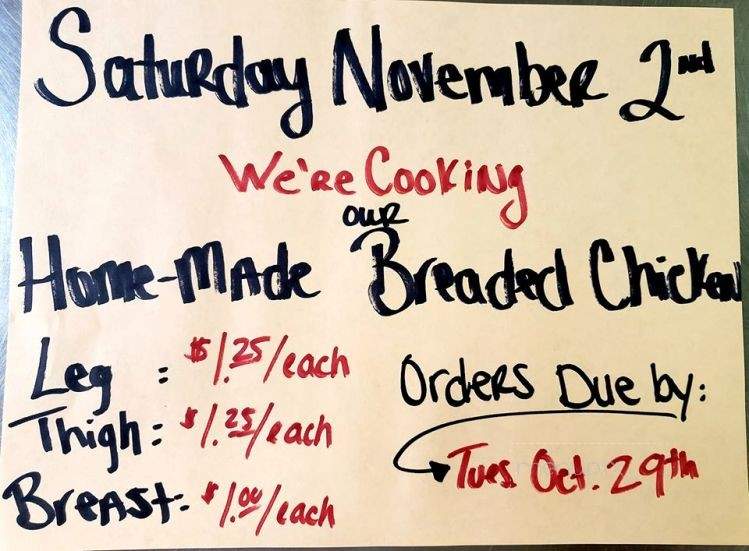 Saturday November 2nd
We're Cooking
our
Home-Made Breaded Chicken
Leg : $1.25/each
Thigh: $1.25/each
Breast: $1.00/each
Orders Due by:
Tues. Oct. 29th